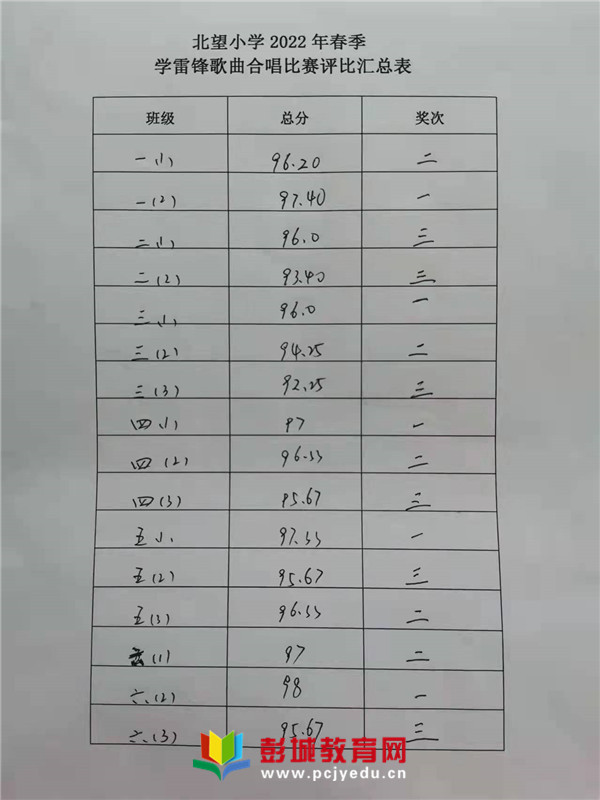 北望小学 2022 年春季
学雷锋歌曲合唱比赛评比汇总表
班级 总分 奖次
一(1) 96.20 二
一(2) 97.40 一
二(1) 96.0 三
二(2) 93.40 三
三(1) 96.0 一
三(2) 94.25 二
三(3) 92.25 三
四(1) 97 一
四(2) 96.33 二
四(3) 95.67 三
五(1) 97.33 一
五(2) 95.67 三
五(3) 96.33 二
六(1) 97 二
六(2) 98 一
六(3) 95.67 三
彭城教育网
www.pcjyedu.cn